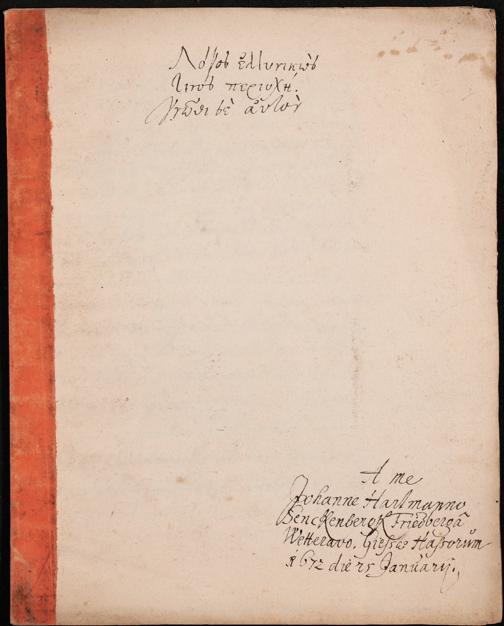 Λόγου ἑλληνικῶς
τινος περιοχή.
Γνῶθι σε αὐτὸν
A me
Johanne Hartmanno
Senckenbergk Friedbergâ
Wetteravo. Giessæ Hassorum
1672 die 25 Januarij.